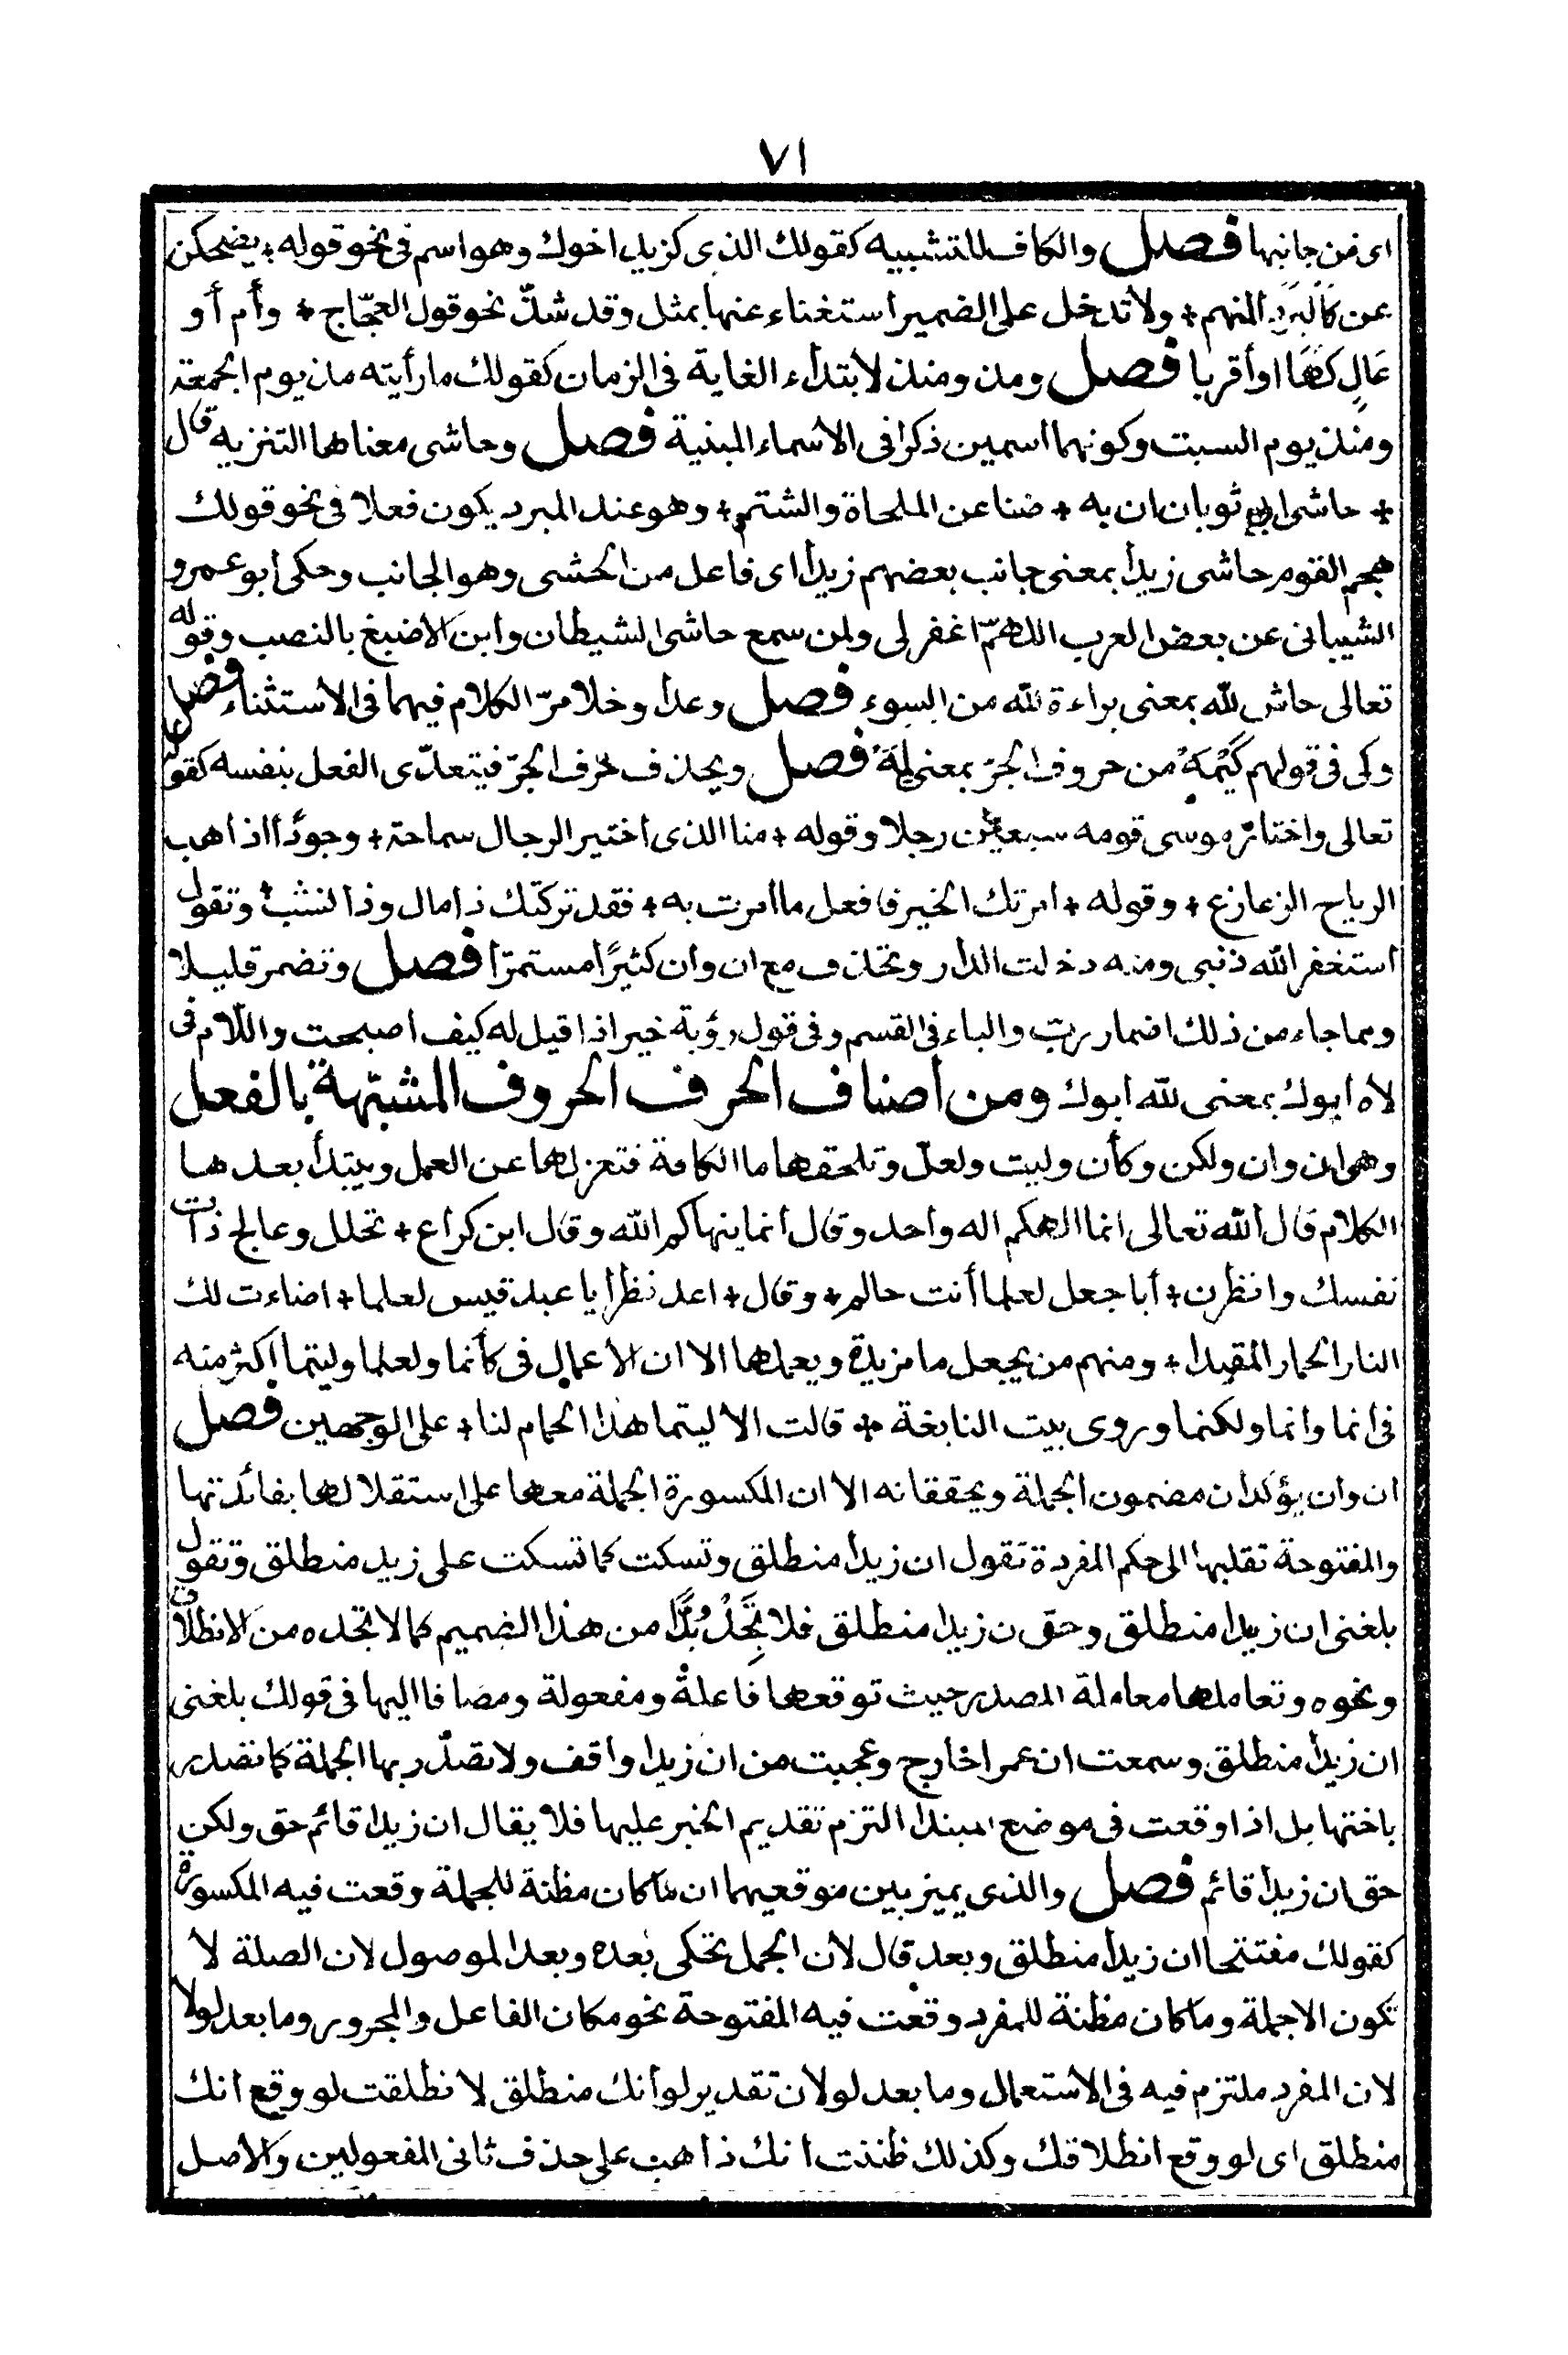 ٧١
اى من جانبها فصل والكاف للتشبيه كقولك الذى كزيد اخوك وهو اسم فى نحو قوله ٭ يضحكن
عن كَالبَرَدِ المنهم ٭ ولا تدخل على الضمير استغناء عنها بمثل وقد شذّ نحو قول العجّاج ٭ وأم أو
عَالٍ كهَا اوأقربا فصل ومذ ومنذ لابتداء الغاية فى الزمان كقولك ما رأيته مذ يوم الجمعة
ومنذ يوم السبت وكونهما اسمين ذكرا فى الاسماء المبنية فصل وحاشى معناها التنزيه قال
٭ حاشى ابى ثوبان ان به ٭ ضنا عن الملحاة والشتم ٭ وهو عند المبرد يكون فعلا فى نحو قولك
هجم القوم حاشى زيدا بمعنى جانب بعضهم زيدا اى فاعل من الحشى وهو الجانب وحكى أبو عمرو
الشيبانى عن بعض العرب اللهمّ اغفر لى ولمن سمع حاشى الشيطان وابن الاضبغ بالنصب وقوله
تعالى حاش لله بمعنى براءة لله من السوء فصل وعدا وخلا مرّ الكلام فيهما فى الاستثناء فصل
وكى فى قولهم كَيْمَهْ من حروف الجرّ بمعنى لِمَهْ فصل ويحذف حرف الجرّ فيتعدّى الفعل بنفسه كقوله
تعالى واختار موسى قومه سبعين رجلا وقوله ٭ منا الذى اختير الرجال سماحة ٭ وجودًا اذا هب
الرياح الزعازع ٭ وقوله ٭ امرتك الخير فافعل ما امرت به ٭ فقد تركتك ذا مال وذا نشب ٭ وتقول
استغفر الله ذنبى ومنه دخلت الدار وتحذف مع ان وان كثيرًا مستمرّا فصل وتضمر قليلا
ومما جاء من ذلك اضمار ربّ والباء فى القسم وفى قول رؤبة خير اذا قيل له كيف اصبحت واللام فى
لاه ابوك بمعنى لله ابوك ومن أصناف الحرف الحروف المشبّهة بالفعل
وهى ان وان ولكن وكأن وليت ولعلّ وتلحقها ما الكافة فتعزلها عن العمل ويبتدأ بعدها
الكلام قال الله تعالى انما الهكم اله واحد وقال انما ينهاكم الله وقال ابن كراع ٭ تحلل وعالج ذات
نفسك وانظرن ٭ أبا جعل لعلما أنت حالم ٭ وقال ٭ اعد نظرا يا عبد قيس لعلما ٭ اضاءت لك
النار الحمار المقيدا ٭ ومنهم من يجعل ما مزيدة ويعملها الا ان الاعمال فى كأنما ولعلما وليتما اكثر منه
فى انما وانما ولكنما وروى بيت النابغة ٭ قالت الا ليتما هذا الحمام لنا ٭ على الوجهين فصل
ان وان يؤكدان مضمون الجملة ويحققانه الا ان المكسورة الجملة معها على استقلالها بفائدتها
والمفتوحة تقلبها الى حكم المفرد تقول ان زيدا منطلق وتسكت كما تسكت على زيد منطلق وتقول
بلغنى ان زيدا منطلق وحق ن زيدا منطلق فلا تَجِدُ بُدًّا من هذا الضميم كما لا تجده من الانطلاق
ونحوه وتعاملها معاملة المصدر حيث توقعها فاعلة ومفعولة ومضافا اليها فى قولك بلغنى
ان زيدا منطلق وسمعت ان عمرا خارج وعجبت من ان زيدا واقف ولا تصدّر بها الجملة كما تصدر
باختها بل اذا وقعت فى موضع المبتدا التزم تقديم الخبر عليها فلا يقال ان زيدا قائم حق ولكن
حق ان زيدا قائم فصل والذى يميز بين موقعيهما ان ما كان مظنة للجملة وقعت فيه المكسورة
كقولك مفتتحا ان زيدا منطلق وبعد قال لان الجمل تحكى بعده وبعد الموصول لان الصلة لا
تكون الا جملة وما كان مظنة للمفرد وقعت فيه المفتوحة نحو مكان الفاعل والمجرور وما بعد لولا
لان المفرد ملتزم فيه فى الاستعمال وما بعد لو لان تقدير لو أنك منطلق لانطلقت لو وقع انك
منطلق اى لو وقع انطلاقك وكذلك ظننت انك ذاهب على حذف ثانى المفعولين والاصل